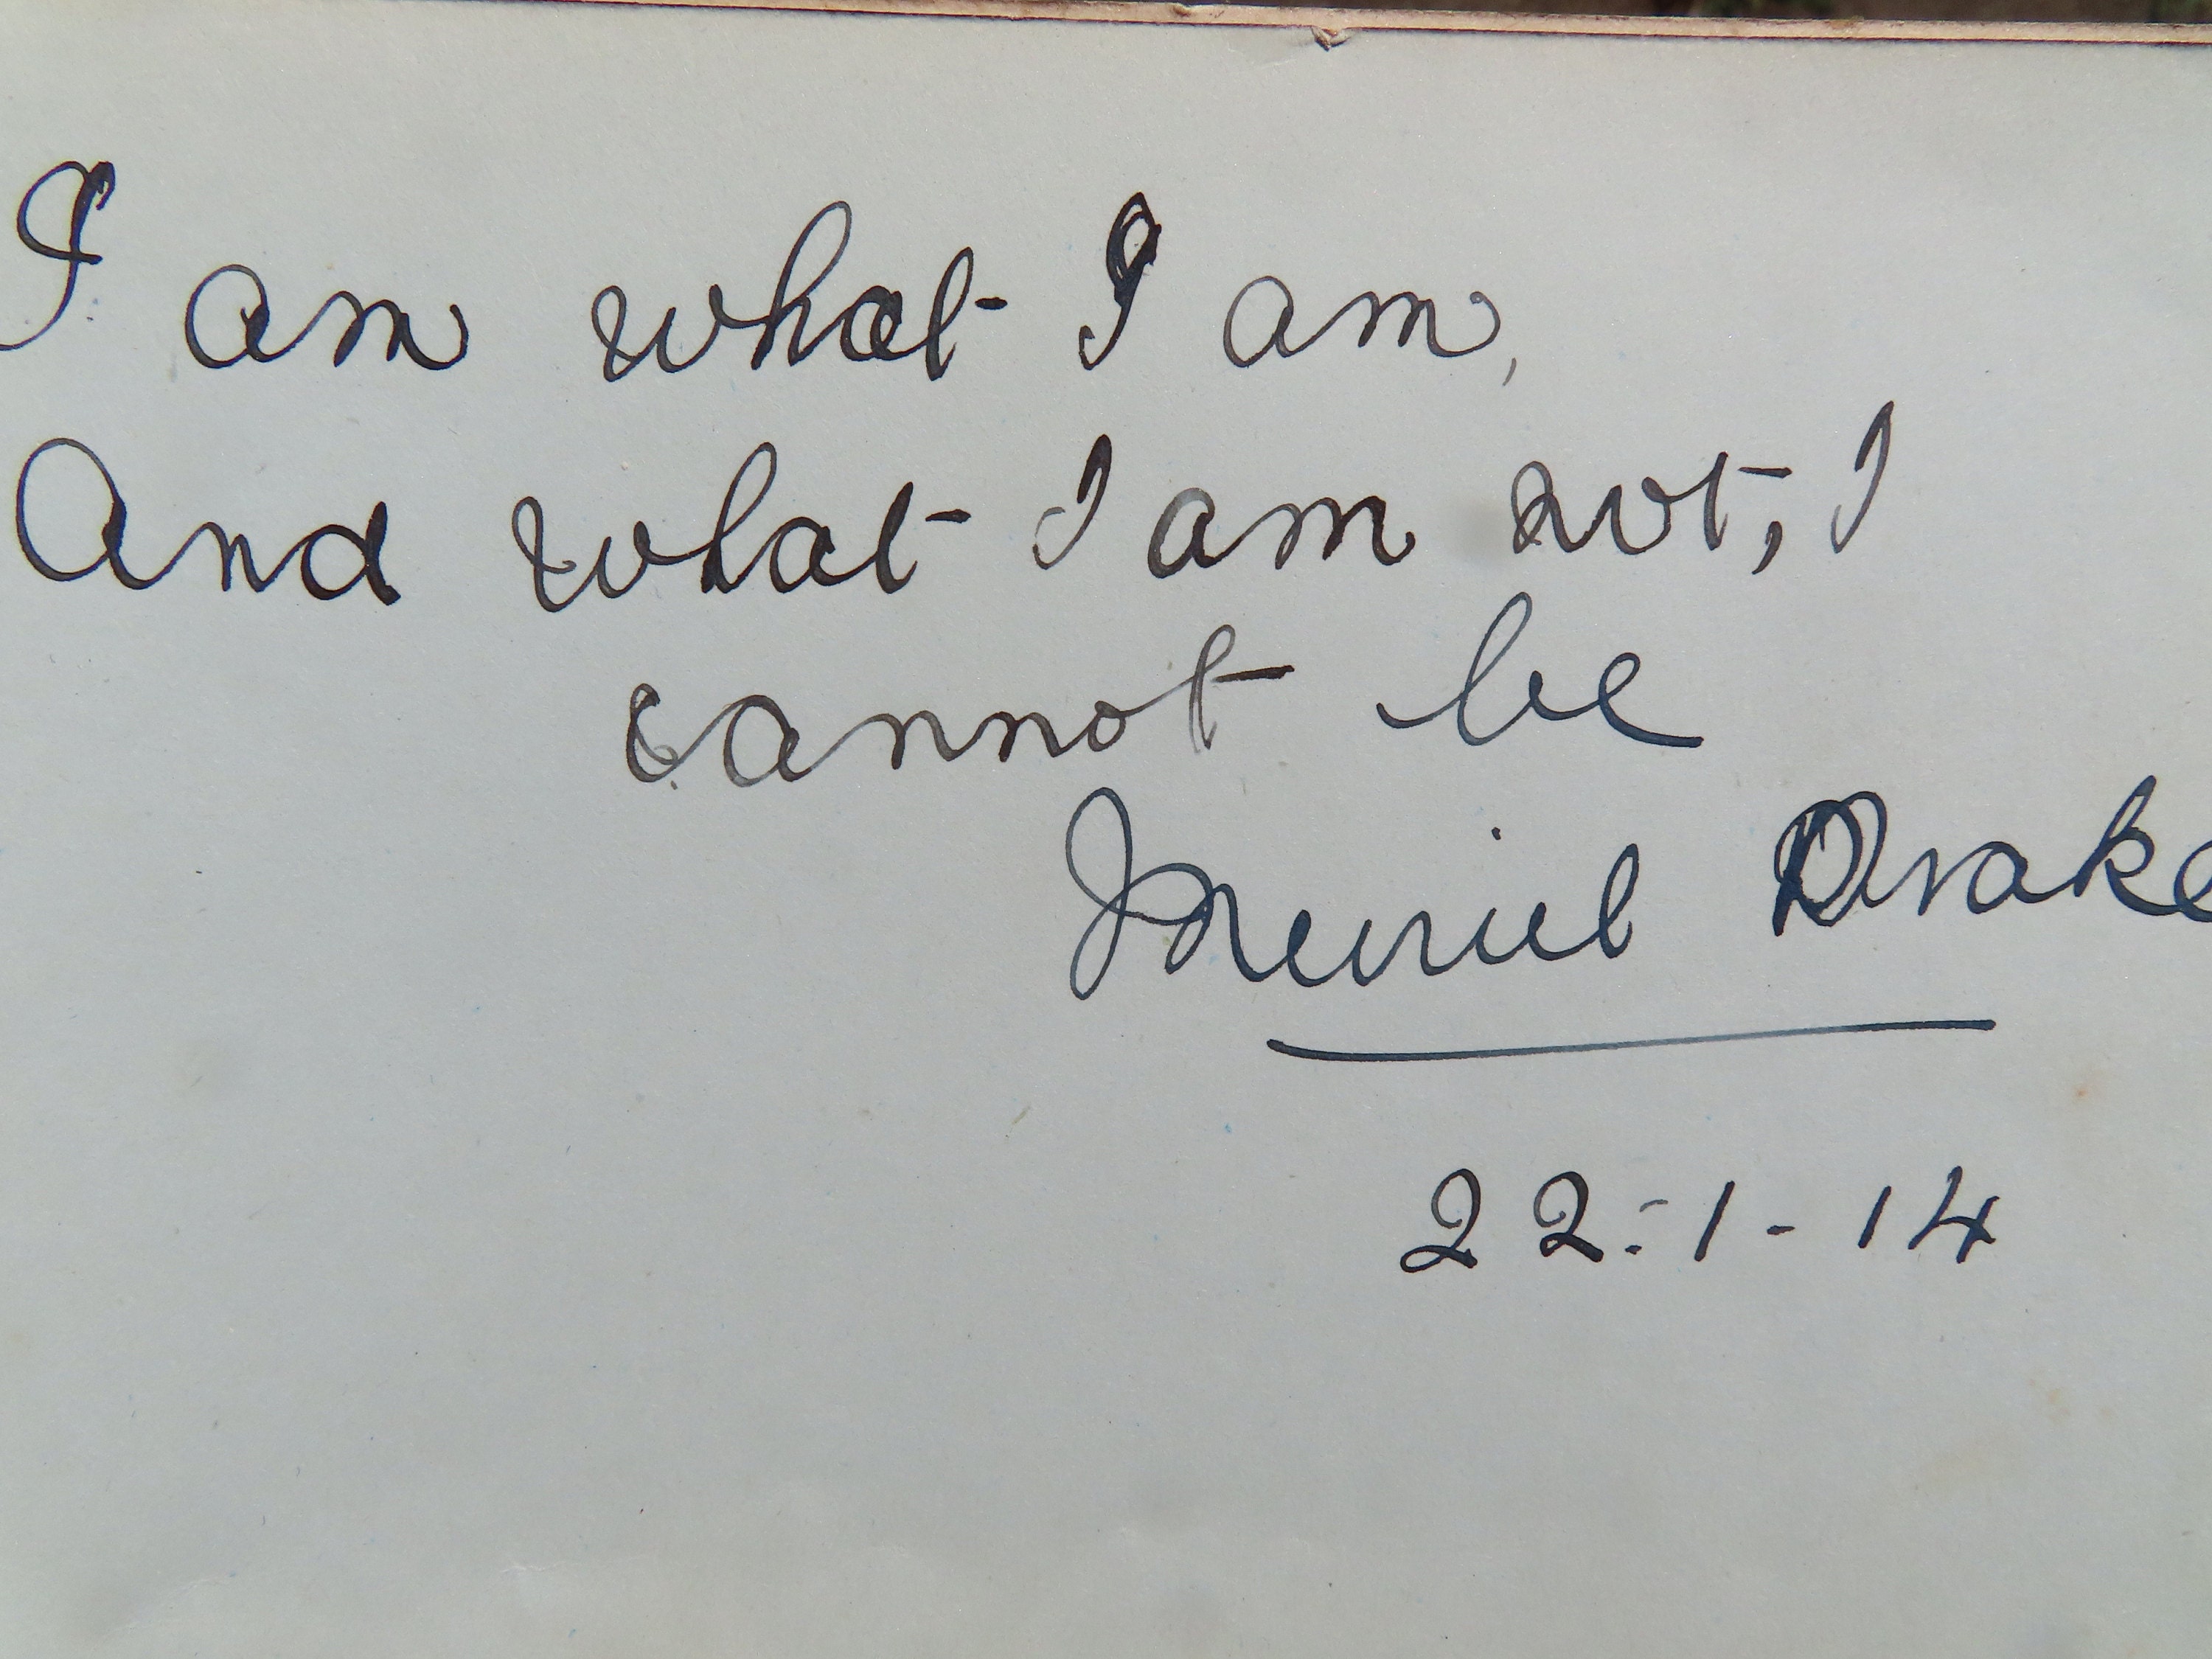 I am what I am,
And what I am not, I
cannot be
Muriel Drake
22-1-14